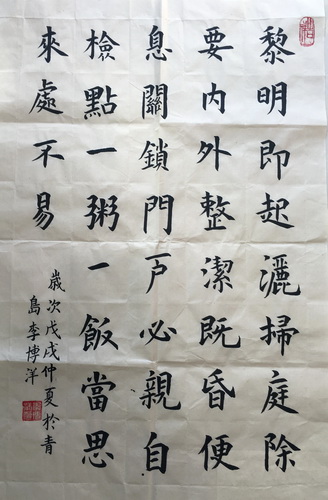 黎明即起灑掃庭除
要内外整潔既昏便
息關鎖門户必親自
檢點一粥一飯當思
來處不易
歲次戊戌仲夏於青
島李博洋